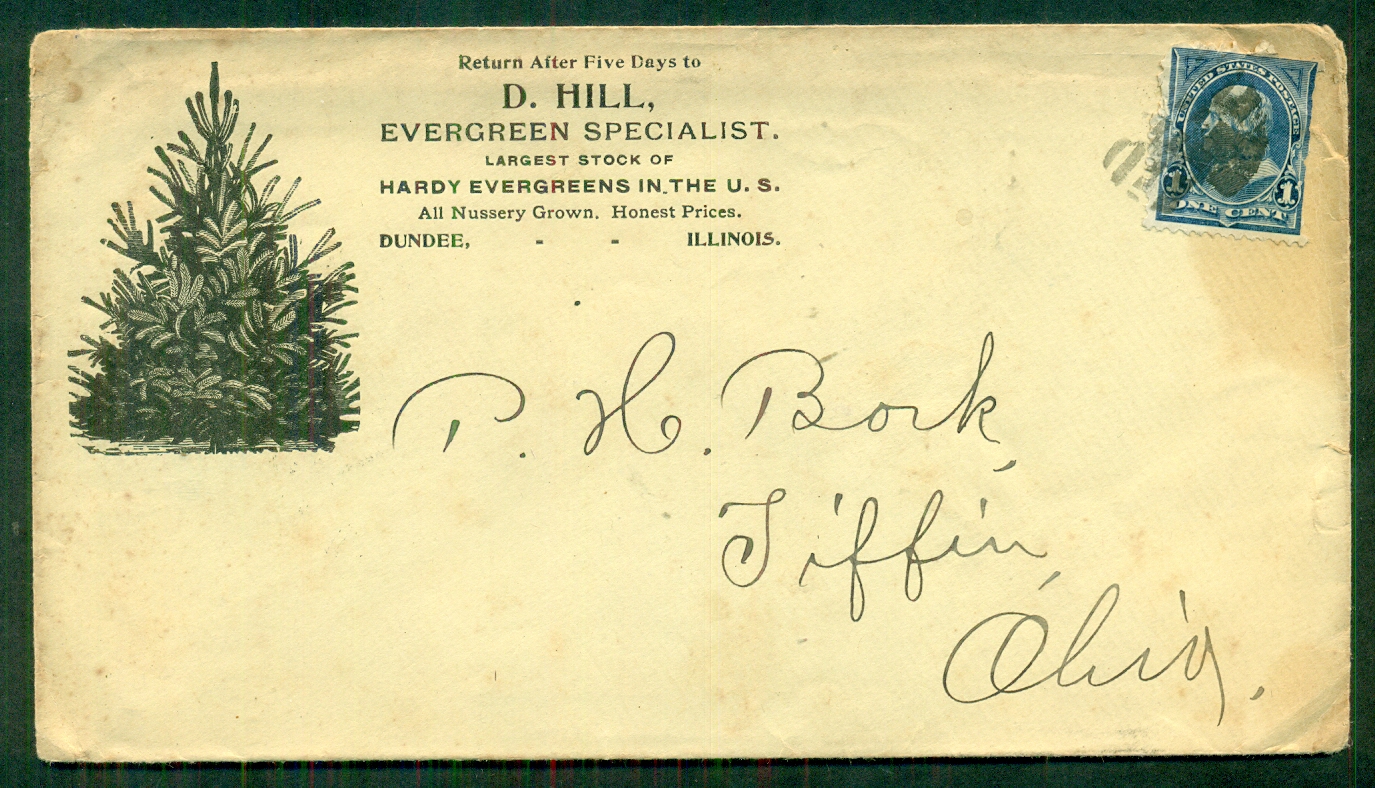 Return After Five Days to
D. HILL,
EVERGREEN SPECIALIST.
LARGEST STOCK OF
HARDY EVERGREENS IN THE U. S.
All Nussery Grown. Honest Prices.
DUNDEE, - - ILLINOIS.
UNITED STATES POSTAGE
1 1
ONE CENT
P. H. Bork,
Tiffin,
Ohio.